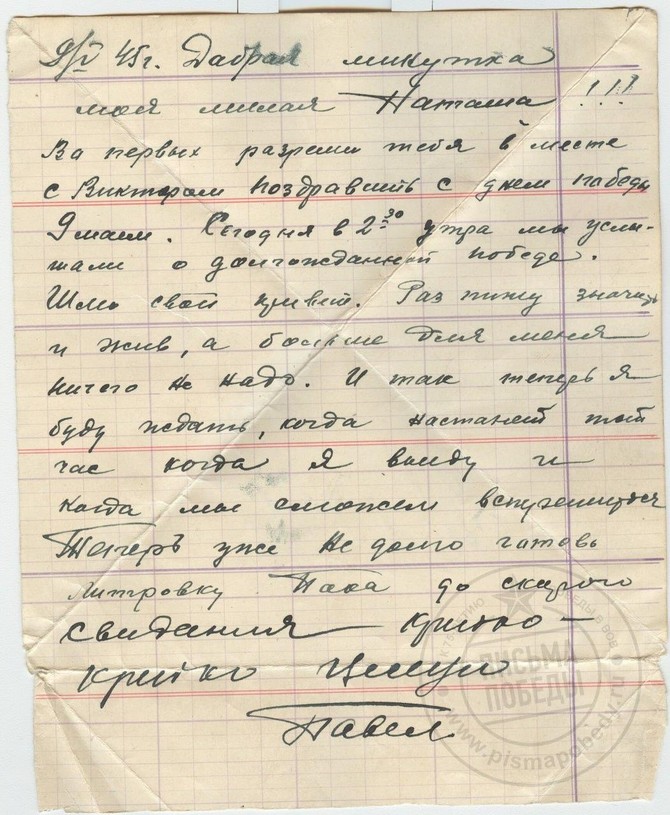 9/V 45г. Добрая минутка
моя милая Наташа!!!
Во первых разреши тебя в месте
с Виктором поздравить с днем победы
9 маем. Сегодня в 2-30 утра мы услы-
шали о долгожданной победе.
Шлю свой привет. Раз пишу значить
и жив, а больше для меня
ничего не надо. И так теперь я
буду ждать, когда настанет тот
час когда я выйду и
когда мы сможем встретиться
Теперь уже не долго готовь
литровку Пока до скорого
свидания – крепко –
крепко целую
Павел.
ПИСЬМА
ПОБЕДЫ
www.pismapobedy.ru